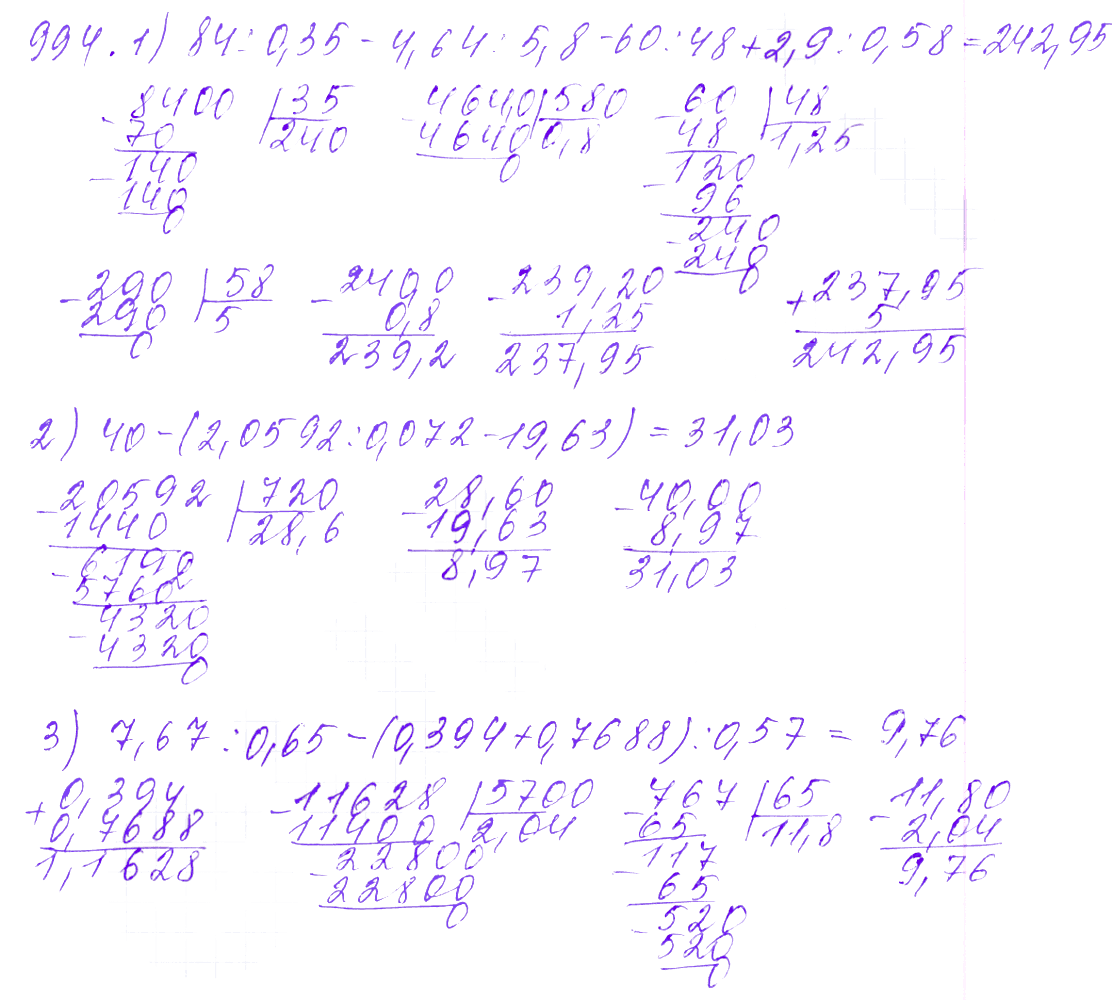 994. 1) 84:0,35-4,64:5,8-60:48+2,9:0,58=242,95
-8400 |35 -4640 |580 -60 |48
70 240 4640 0,8 48 1,25
-140 0 -120
140 96
0 -240
240
0
-290 |58 -2400 -239,20 +237,95
290 5 0,8 1,25 5
0 239,2 237,95 242,95
2) 40-(2,0592:0,072-19,63)=31,03
-20592 |720 -28,60 -40,00
1440 28,6 19,63 8,97
-6192 8,97 31,03
5760
-4320
4320
0
3) 7,67:0,65-(0,394+0,7688):0,57= 9,76
+0,394 -11628 |5700 -767 |65 -11,80
0,7688 11400 2,04 65 11,8 2,04
1,1628 -22800 -117 9,76
22800 65
0 -520
520
0